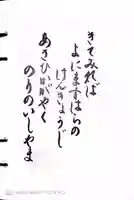 きてみれば
よにますはらの
けんきょうじ
あさひがゞやく
のりのいしやま